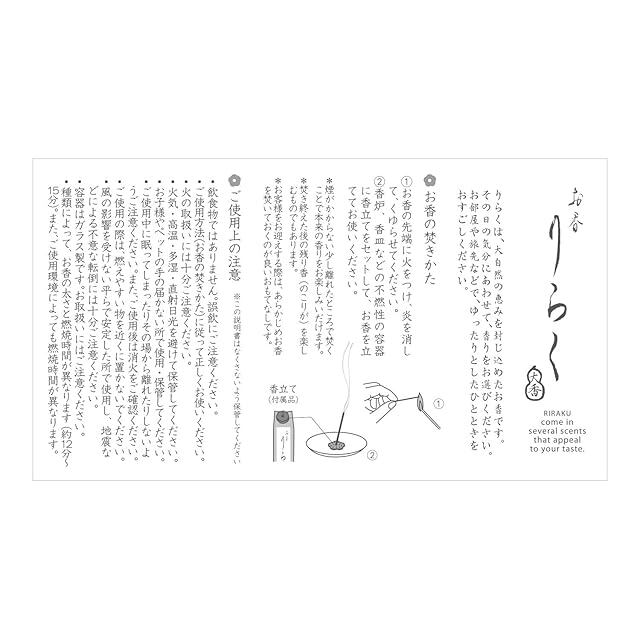 お香
りらく
大香
RIRAKU
come in
several scents
that appeal
to your taste.
りらくは、大自然の恵みを封じ込めたお香です。
その日の気分にあわせて、香りをお選びください。
お部屋や旅先などで、ゆったりとしたひとときを
おすごしください。
お香の焚きかた
①お香の先端に火をつけ、炎を消し
て、くゆらせてください。
②香炉、香皿などの不燃性の容器
に香立てをセットして、お香を立
ててお使いください。
＊煙がかからない少し離れたところで焚く
ことで本来の香りをお楽しみいただけます。
＊焚き終えた後の残り香（のこりが）を楽し
むものでもあります。
＊お客様をお迎えする際は、あらかじめお香
を焚いておくのが良いおもてなしです。
①
②
香立て
(付属品)
りらく
ご使用上の注意
※この説明書はなくさないよう保管してください
・飲食物ではありません。誤飲にご注意ください。
・ご使用方法（お香の焚きかた）に従って正しくお使いください。
・火の取扱いには十分ご注意ください。
・火気・高温・多湿・直射日光を避けて保管してください。
・お子様やペットの手の届かない所で使用・保管してください。
・ご使用中に眠ってしまったりその場から離れたりしないよ
うご注意ください。また、ご使用後は消火をご確認ください。
・ご使用の際は、燃えやすい物を近くに置かないでください。
・風の影響を受けない平らで安定した所で使用し、地震な
どによる不意な転倒には十分ご注意ください。
・容器はガラス製です。お取扱いにはご注意ください。
・種類によって、お香の太さと燃焼時間が異なります（約12分～
15分）。また、ご使用環境によっても燃焼時間が異なります。